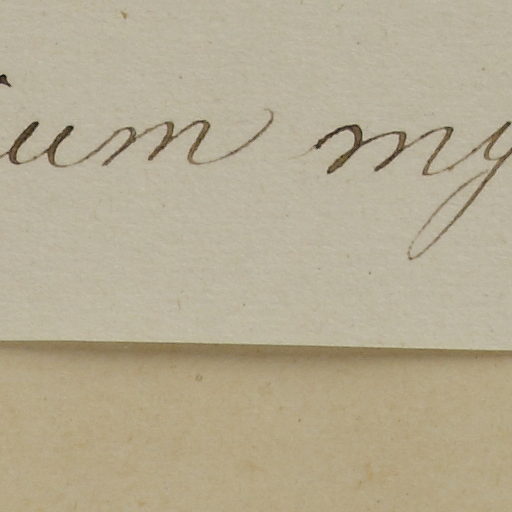 ium my